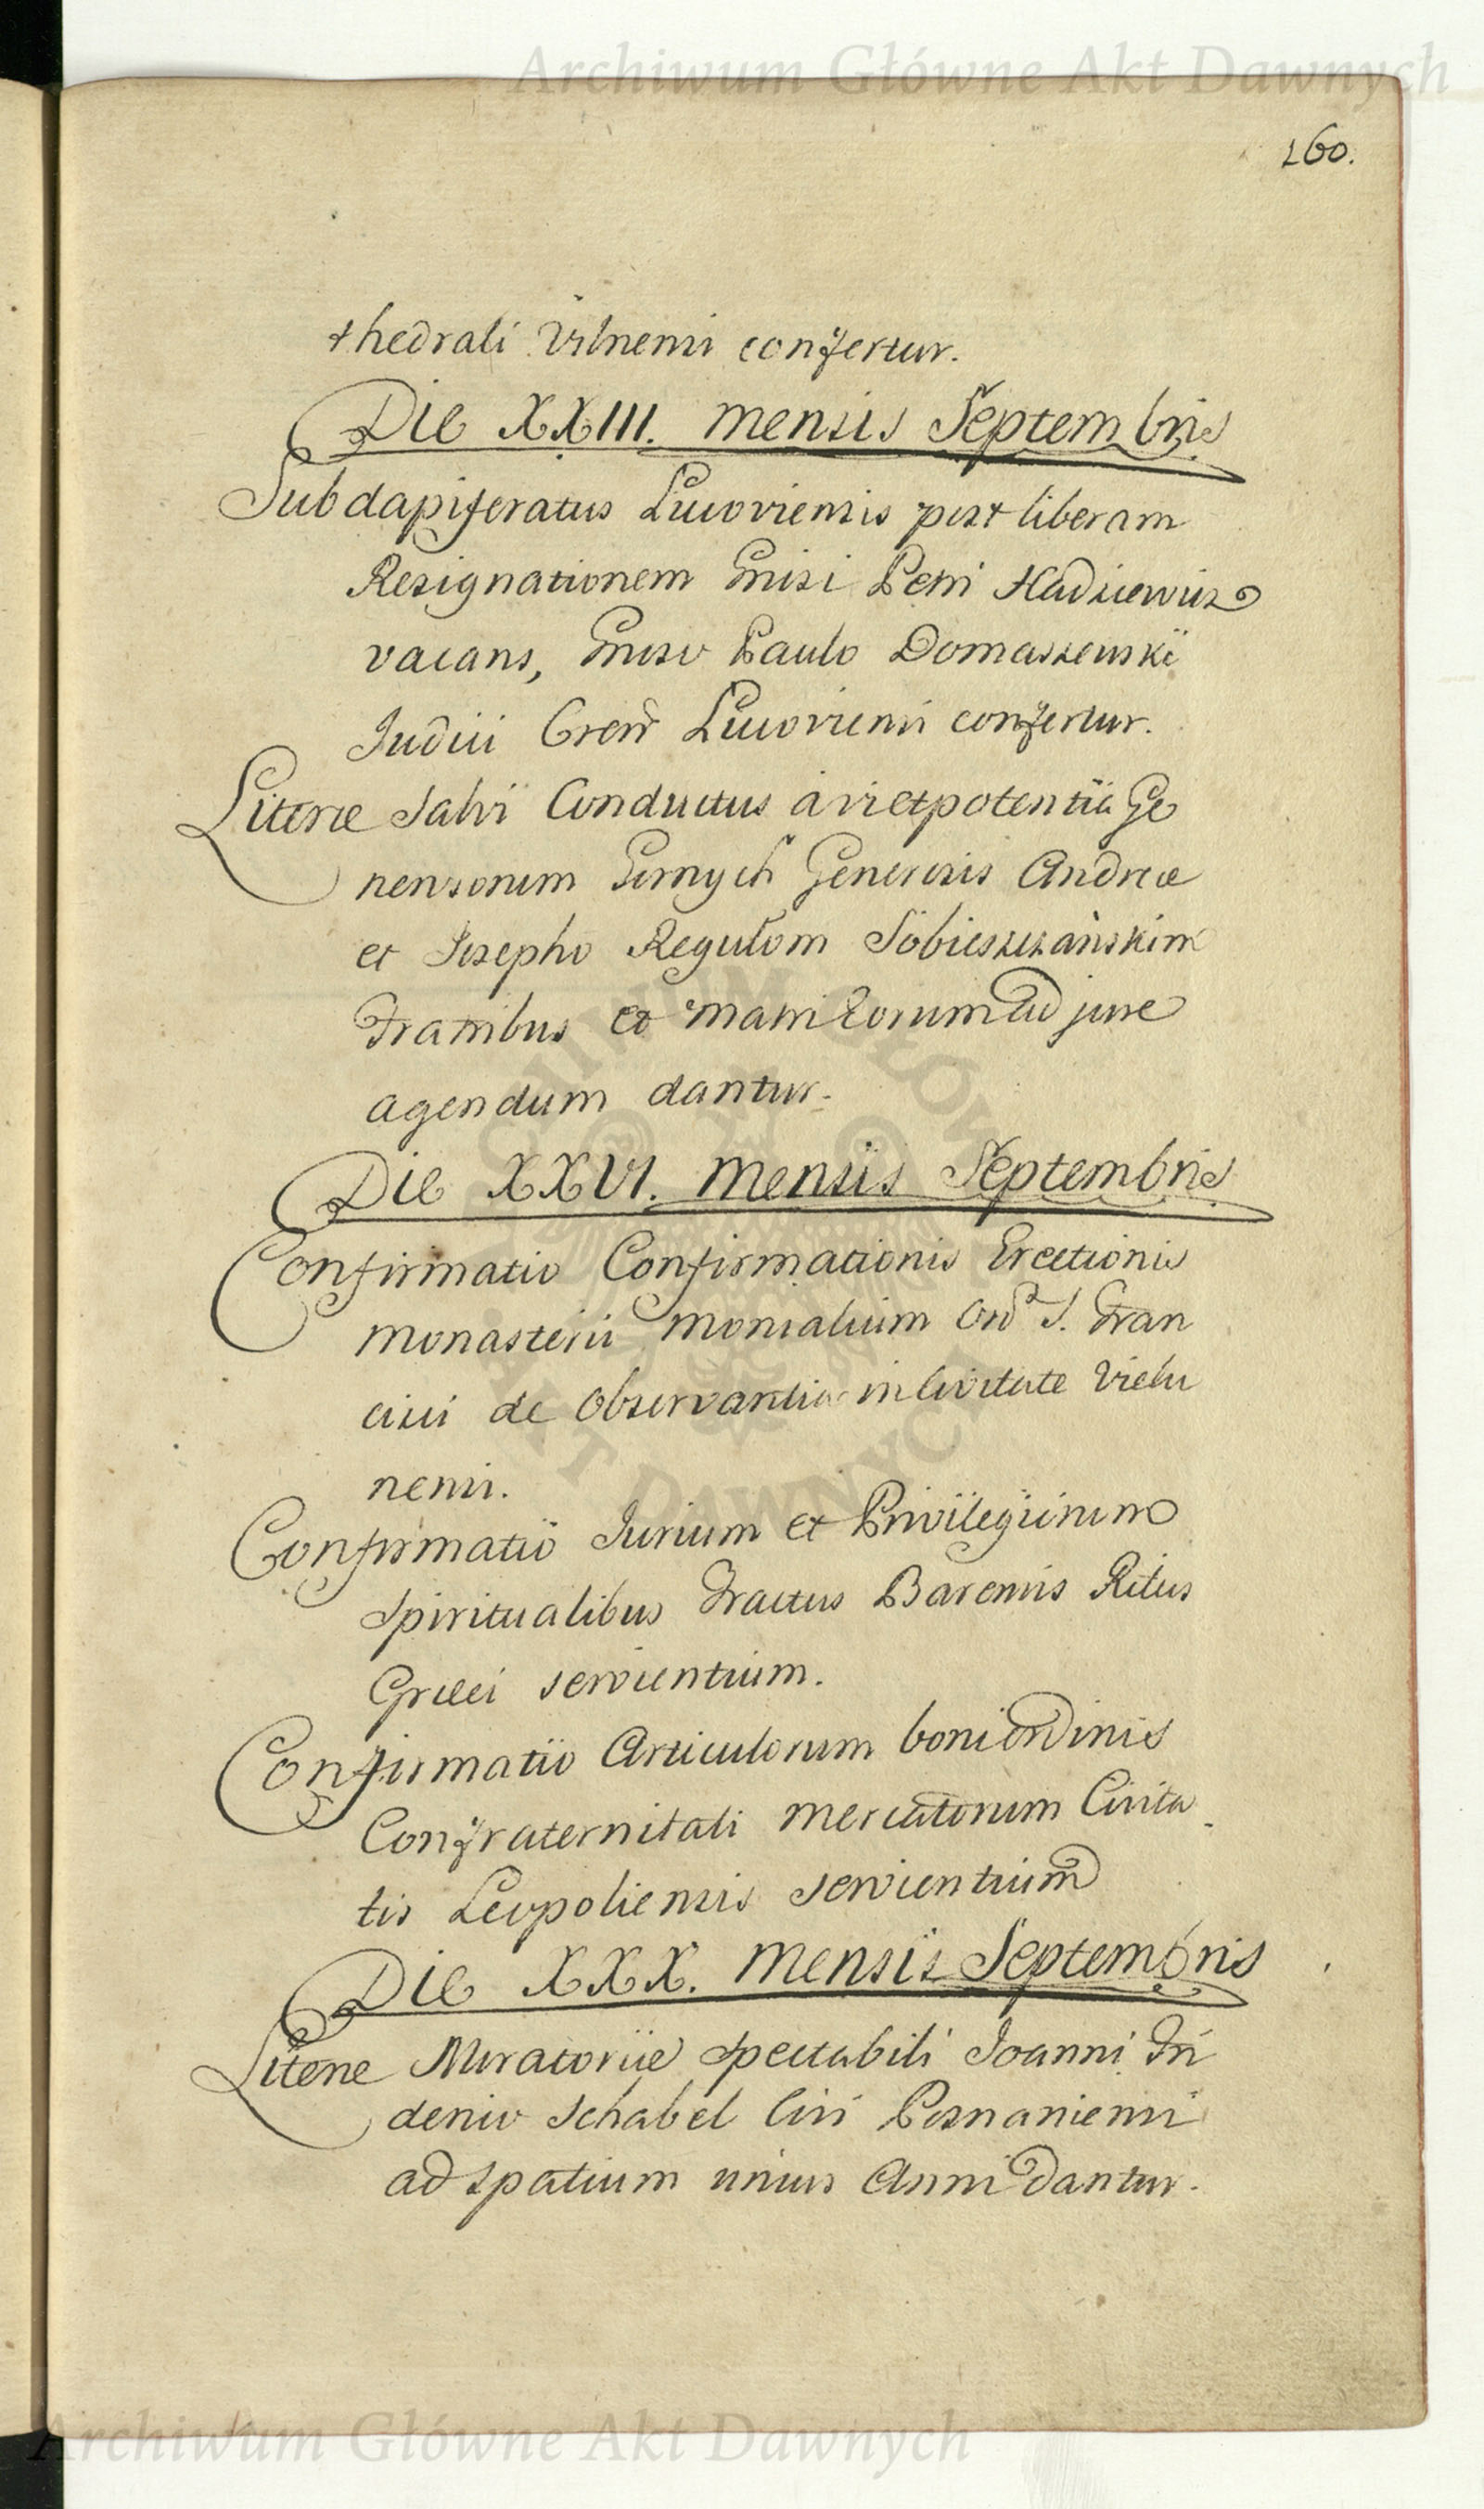 Archiwum Główne Akt Dawnych
160.
thedrali Vilnensi confertur.
Die XXIII. Mensis Septembris
Subdapiferatus Lucoviensis post liberam
Resignationem Gnisi Petri Hadziewicz
vacans, Gnoso Paulo Domaszewski
Judici Lucoviensi confertur.
Literæ Salvi Conductus à vi et potentia Ge
nerosorum Generosis Andreæ
et Josepho Sobieszczanskim
Fratribus et Matri Eorum ad jure
agendum dantur.
Die XXVI. Mensis Septembris
Confirmatio Confirmationis Erectionis
Monasterii Monialium Ord S. Fran
cisci de Observantia in Civitate Vielu
nensi.
Confirmatio Jurium et Privilegiorum
Spiritualibus Tractus Barensis Ritus
Græci servientium.
Confirmatio Articulorum boni ordinis
Confraternitati Mercatorum Civita
tis Leopoliensis servientium
Die XXX. Mensis Septembris
Literæ Moratoriæ Spectabili Joanni Fri
derico Schabel Civi Posnaniensi
ad spatium unius Anni dantur.
Archiwum Główne Akt Dawnych